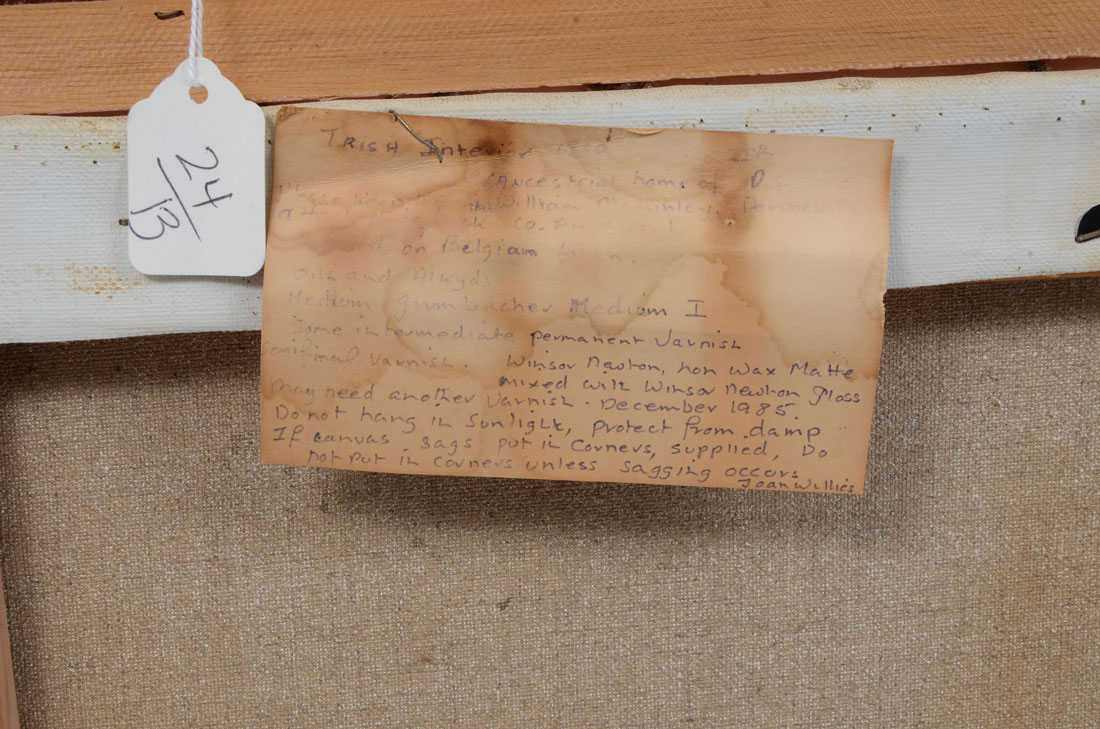 24/13
IRISH Interior
(Ancestrial home of
Please keep William McKinley,
Co.
on Belgian
Oils and Alkyd.
Medium grumbacher Medium I
Some intermediate permanent Varnish
Semifinal Varnish. Winsor Newton, non wax Matte
mixed with Winsor Newton Gloss
may need another Varnish. December 1985.
Do not hang in Sunlight, protect from damp
If canvas sags put in corners, supplied, Do
not put in corners unless sagging occurs
Joan Willies